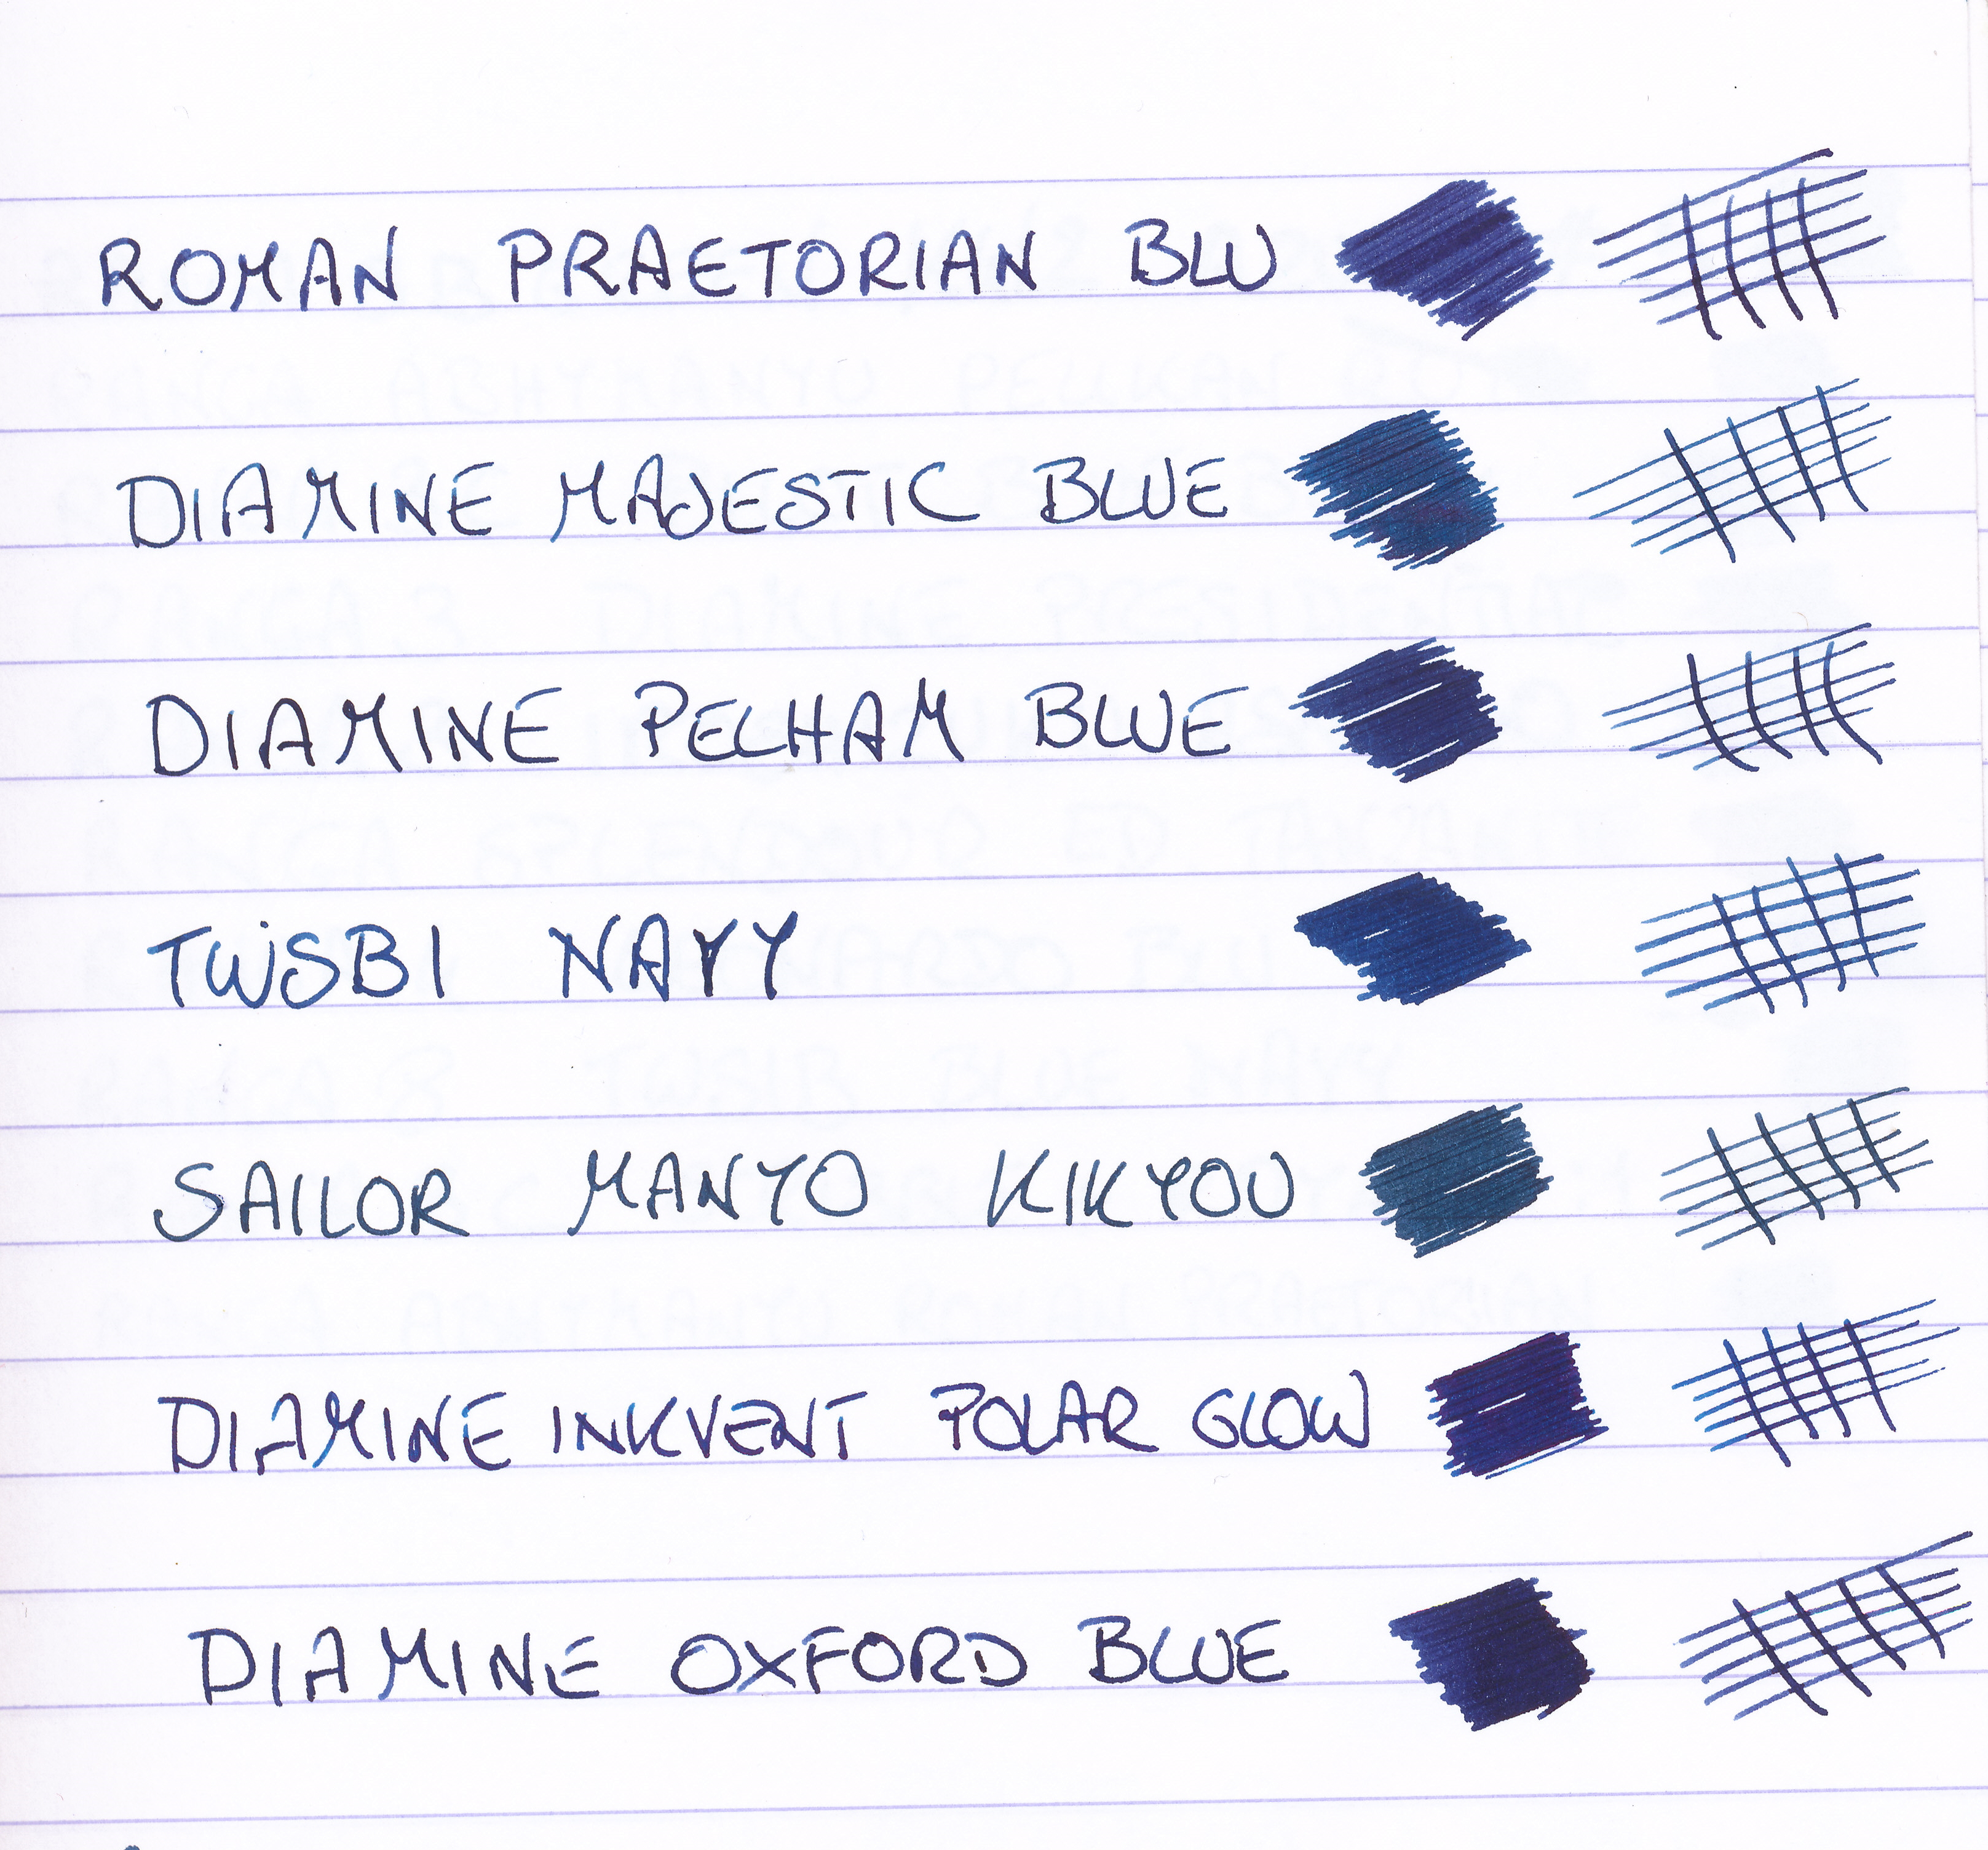 ROMAN PRAETORIAN BLU
DIAMINE MAJESTIC BLUE
DIAMINE PELHAM BLUE
TWSBI NAVY
SAILOR MANYO KIKYOU
DIAMINE INKVENT POLAR GLOW
DIAMINE OXFORD BLUE